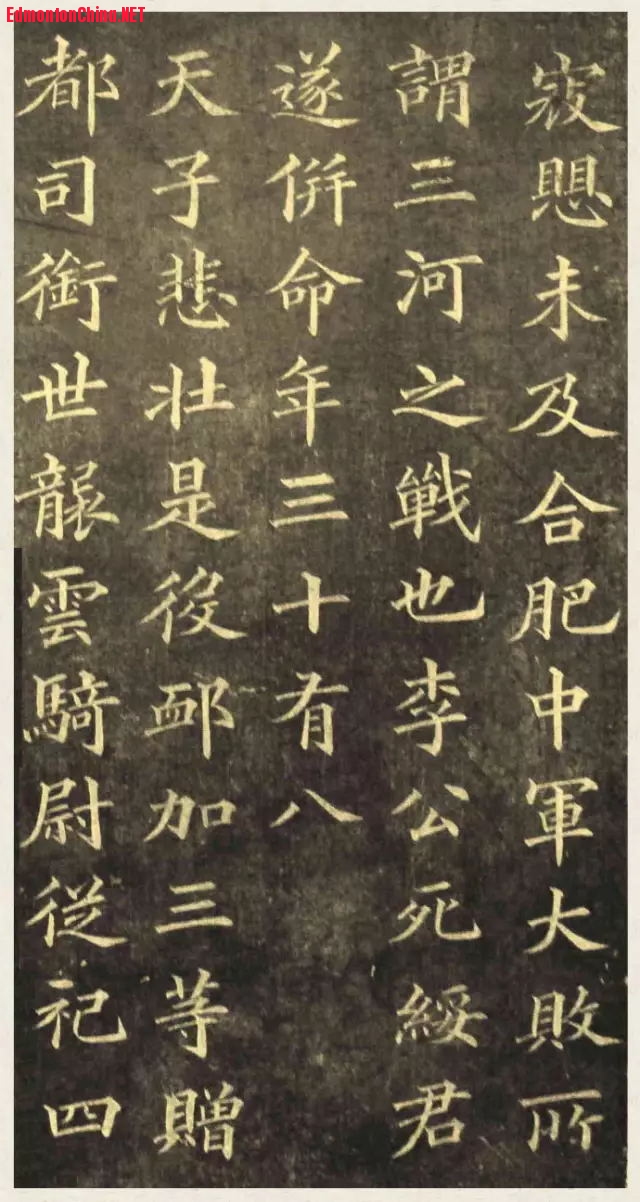 EdmontonChina.NET
未及合肥中軍大敗所
謂三河之戰也李公死綏君
遂併命年三十有八
天子悲壯是役卹加三等贈
都司銜世襲雲騎尉從祀四